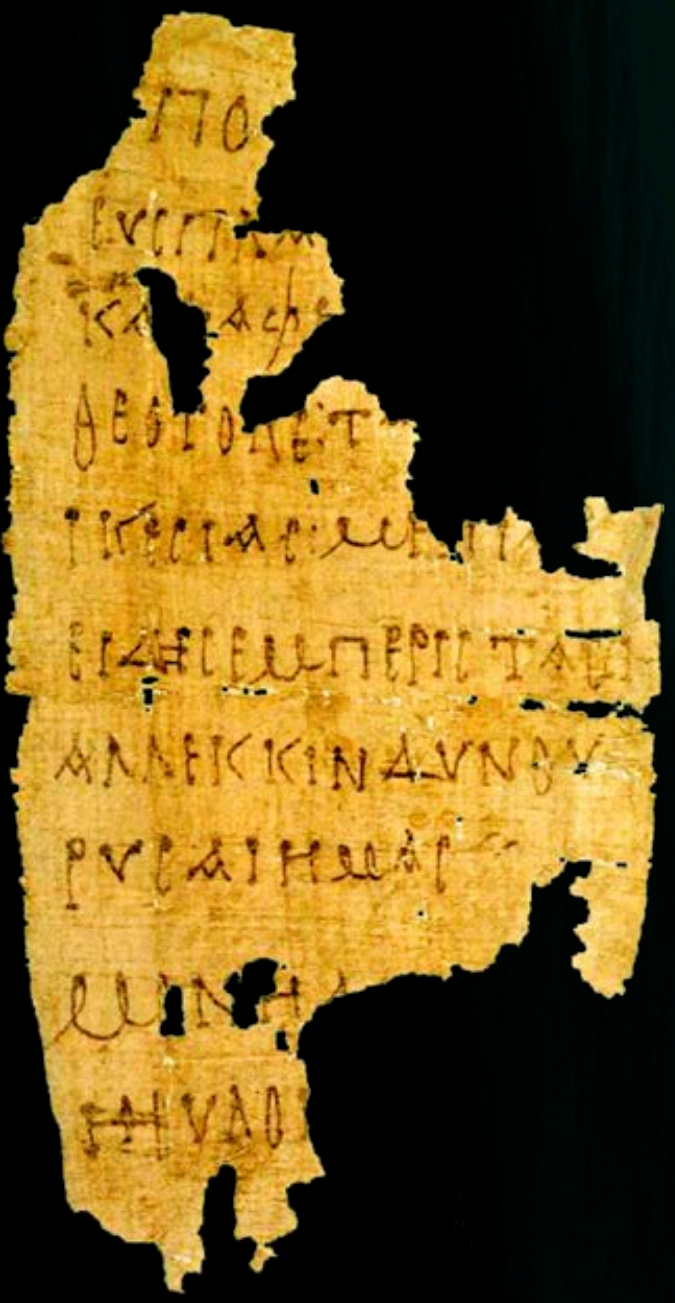 ΠΟ
ΕΥСΠΛΑ
ΚΑΤΑΦΕ
ΘΕΟΤΟΚΕΤ
ΙΚΕСΙΑСΜΗΠΑ
ΕΙΔΗСΕΜΠΕΡΙСΤΑСΕΙ
ΑΛΛΕΚΚΙΝΔΥΝΟΥ
ΡΥСΑΙΗΜΑС
ΜΟΝΗ
ΗΕΥΛΟ